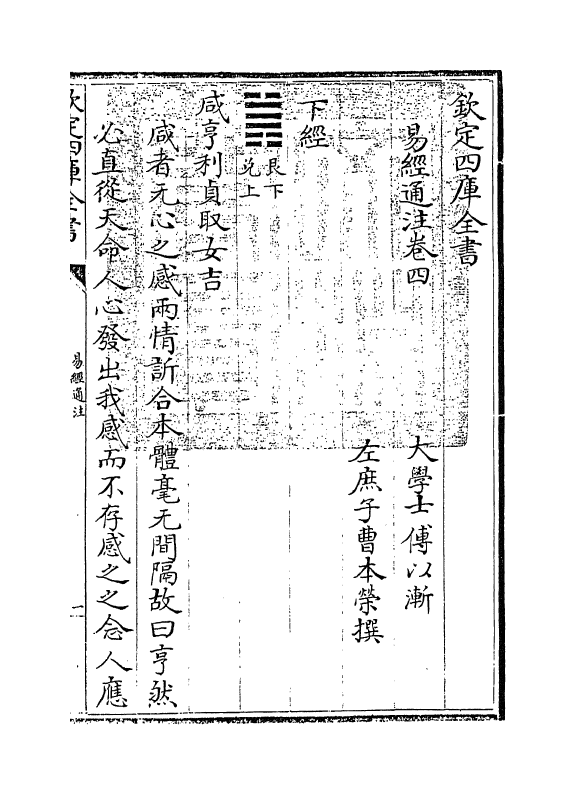 欽定四庫全書
易經通注卷四
大學士傅以漸
左庶子曹本榮撰
下經
艮下
兌上
咸亨利貞取女吉
咸者无心之感兩情訢合本體毫无間隔故曰亨然
必直從天命人心發出我感而不存感之之念人應
欽定四庫全書
易經通注
一